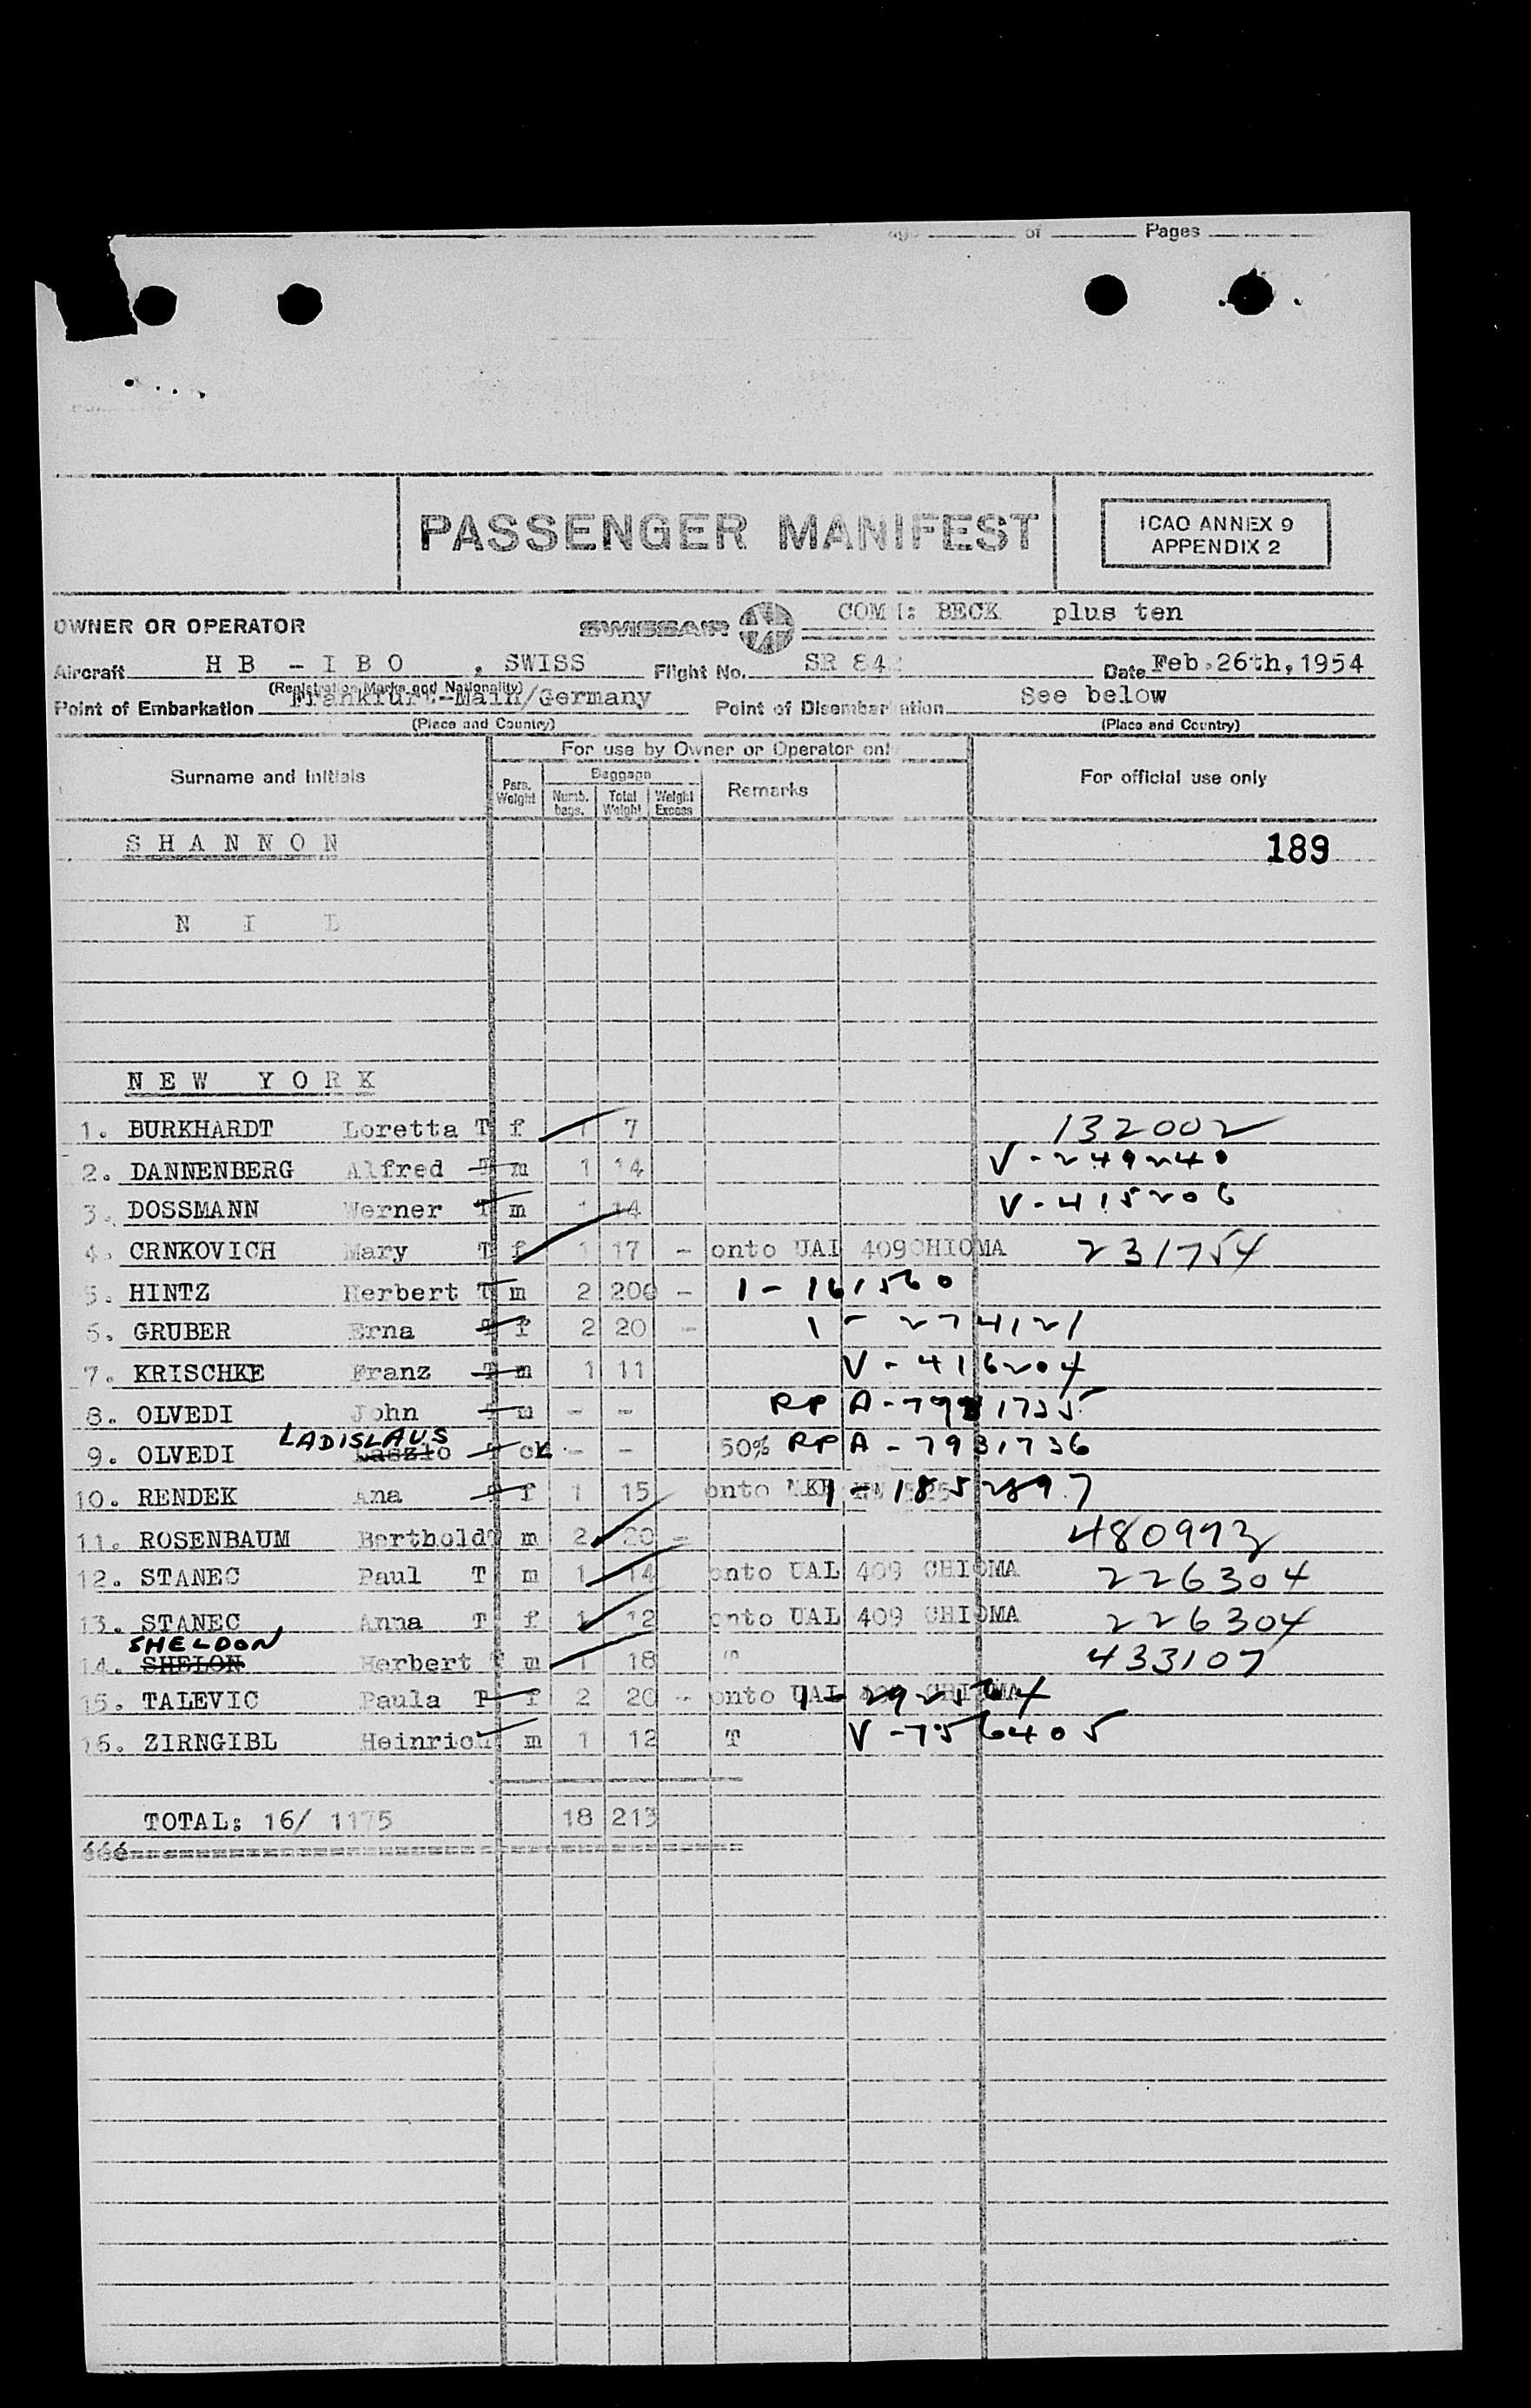 of Pages
PASSENGER MANIFEST
ICAO ANNEX 9
APPENDIX 2
OWNER OR OPERATOR SWISSAIR BECK plus ten
Aircraft H B - I B O , SWISS Flight No. SR 842 Date Feb.26th,1954
(Registration Marks and Nationality)
Point of Embarkation Frankfurt-Main/Germany Point of Disembarkation See below
(Place and Country) (Place and Country)
For use by Owner or Operator only
Surname and Initials Pers. Weight Baggage Numb. bags. Total Weight Weight Excess Remarks For official use only
S H A N N O N 189
N I L
N E W Y O R K
1. BURKHARDT Loretta T f 1 7 132002
2. DANNENBERG Alfred T m 1 14 V-249240
3. DOSSMANN Werner T m 1 14 V-415206
4. CRNKOVICH Mary T f 1 17 - onto UAL 409CHIOMA 231754
5. HINTZ Herbert T m 2 200 - 1-161560
6. GRUBER Erna T f 2 20 - 1-274121
7. KRISCHKE Franz T m 1 11 V-416204
8. OLVEDI John T m - - RP A-7931735
LADISLAUS
9. OLVEDI Laszlo T ck - - 50% RP A-7931736
10. RENDEK Ana T f 1 15 onto
11. ROSENBAUM Barthold T m 2 20 - 480993
12. STANEC Paul T m 1 14 onto UAL 409 CHIOMA 226304
13. STANEC Anna T f 1 12 onto UAL 409 CHIOMA 226304
SHELDON
14. SHELON Herbert T m 1 18 " 433107
15. TALEVIC Paula T f 2 20 - onto UAL
16. ZIRNGIBL Heinrich m 1 12 T V-756405
TOTAL: 16/ 1175 18 213
ééé==========================================